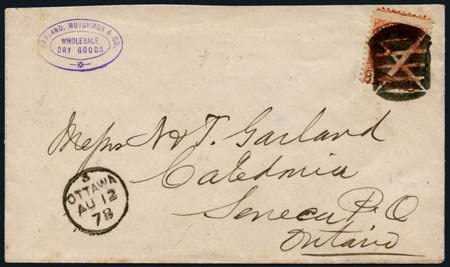 GARLAND, MUTCHMOR & CO.
WHOLESALE
DRY GOODS
Messrs N & T. Garland
Caledonia
Seneca P.O
Ontario
5
OTTAWA
AU 12
78